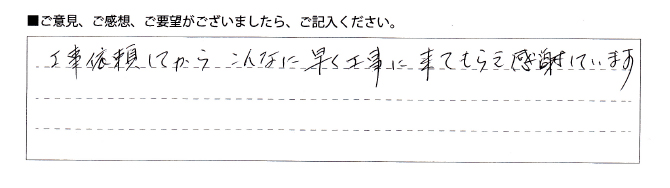 ■ご意見、ご感想、ご要望がございましたら、ご記入ください。
工事依頼してから こんなに早く工事に来てもらえ感謝しています